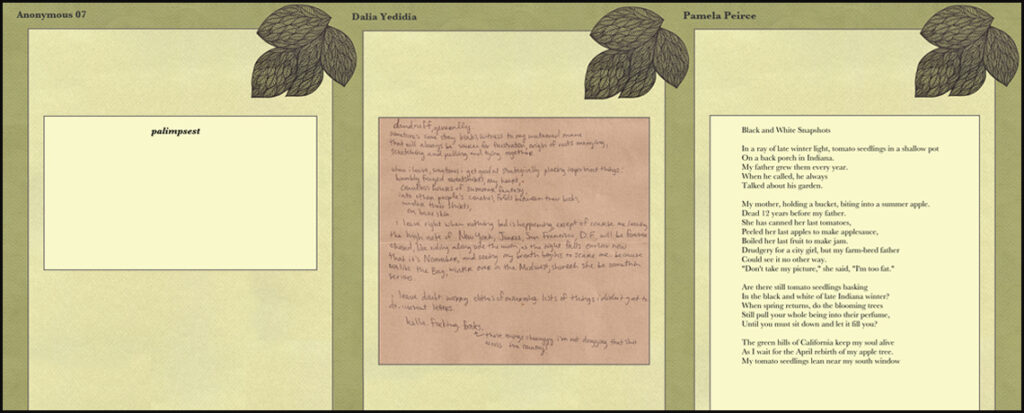 Anonymous 07
palimpsest
Dalia Yedidia
dandruff, generally
sometimes
that will always be source for frustration, origin of
scratching and pulling and tying together.
when i leave, sometimes i get good at strategically placing important things:
my heart,
countless hours of summer fantasy
into other people's
under their
on bare skin.
i leave right when nothing bad is happening except of course me leaving
the high note of New York, San Francisco, D.F. will be forever
the night falls earlier now
that it's November, and seeing my breath begins to scare me. because
unlike the Bay, winter over in the Midwest,
serious.
i leave doubt worry clothes lists of things i didn't get to
do. unsent letters.
hella fucking books.
these things i'm not dragging that shit
across the country
Pamela Peirce
Black and White Snapshots
In a ray of late winter light, tomato seedlings in a shallow pot
On a back porch in Indiana.
My father grew them every year.
When he called, he always
Talked about his garden.
My mother, holding a bucket, biting into a summer apple.
Dead 12 years before my father.
She has canned her last tomatoes,
Peeled her last apples to make applesauce,
Boiled her last fruit to make jam.
Drudgery for a city girl, but my farm-bred father
Could see it no other way.
"Don't take my picture," she said, "I'm too fat."
Are there still tomato seedlings basking
In the black and white of late Indiana winter?
When spring returns, do the blooming trees
Still pull your whole being into their perfume,
Until you must sit down and let it fill you?
The green hills of California keep my soul alive
As I wait for the April rebirth of my apple tree.
My tomato seedlings lean near my south window